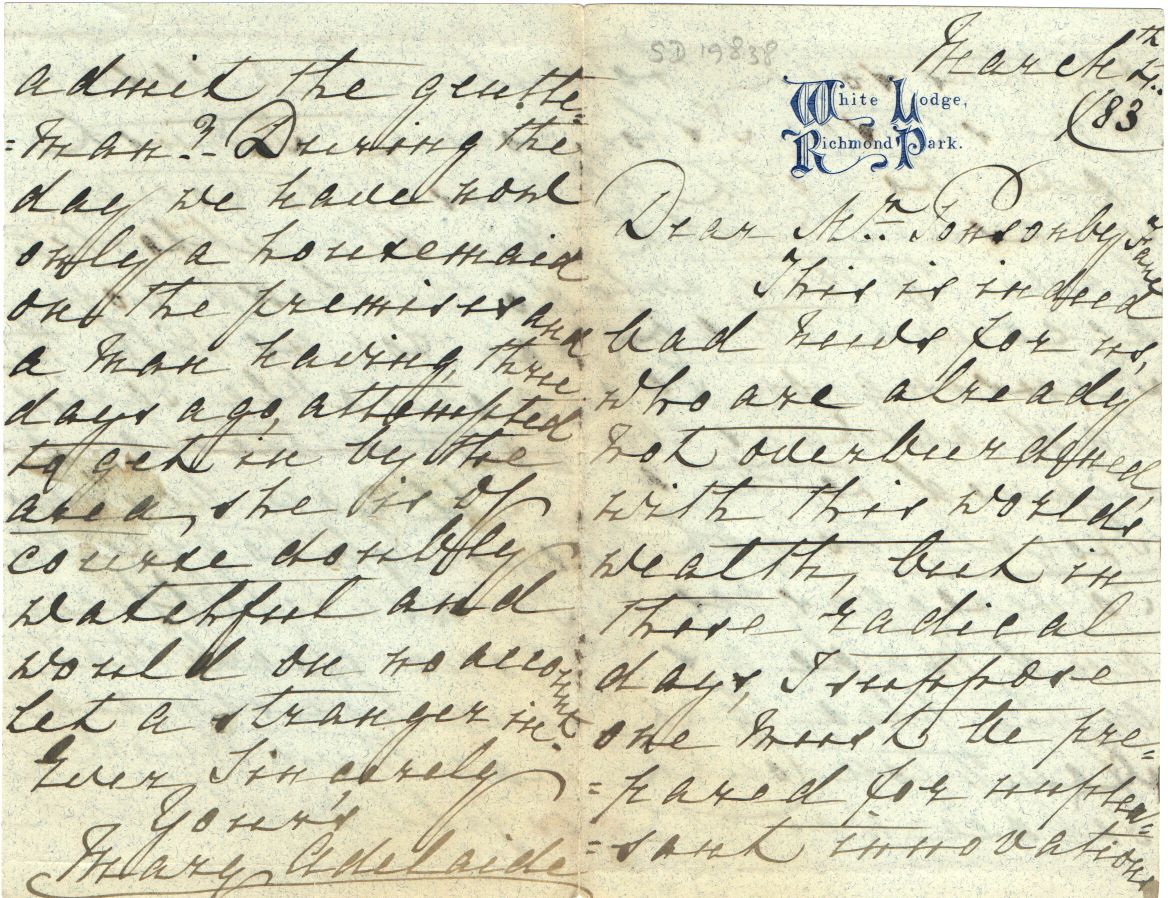 SD 19838
March 4th.
/83
White Lodge,
Richmond Park.
Dear Mr. Ponsonby Fane
This is indeed
bad news for us,
who are already
not overburdened
with this world's
wealth, but in
these radical
days, I suppose
one must be pre=
=pared for unplea=
=sant innovations
admit the gentle=
=man? - During the
day we have now
only a housemaid
on the premises and
a man having, three
days ago, attempted
to get in by the
area, she is of
course doubly
watchful and
would on no account
let a stranger in.
Ever Sincerely
Your's
Mary Adelaide